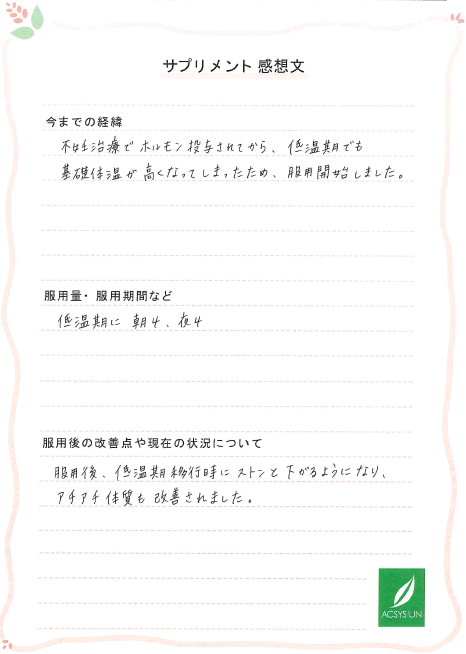 サプリメント 感想文
今までの経緯
不妊治療でホルモン投与されてから、低温期でも
基礎体温が高くなってしまったため、服用開始しました。
服用量・服用期間など
低温期に 朝4、夜4
服用後の改善点や現在の状況について
服用後、低温期移行時にストンと下がるようになり、
アチアチ体質も改善されました。
ACSYSUN